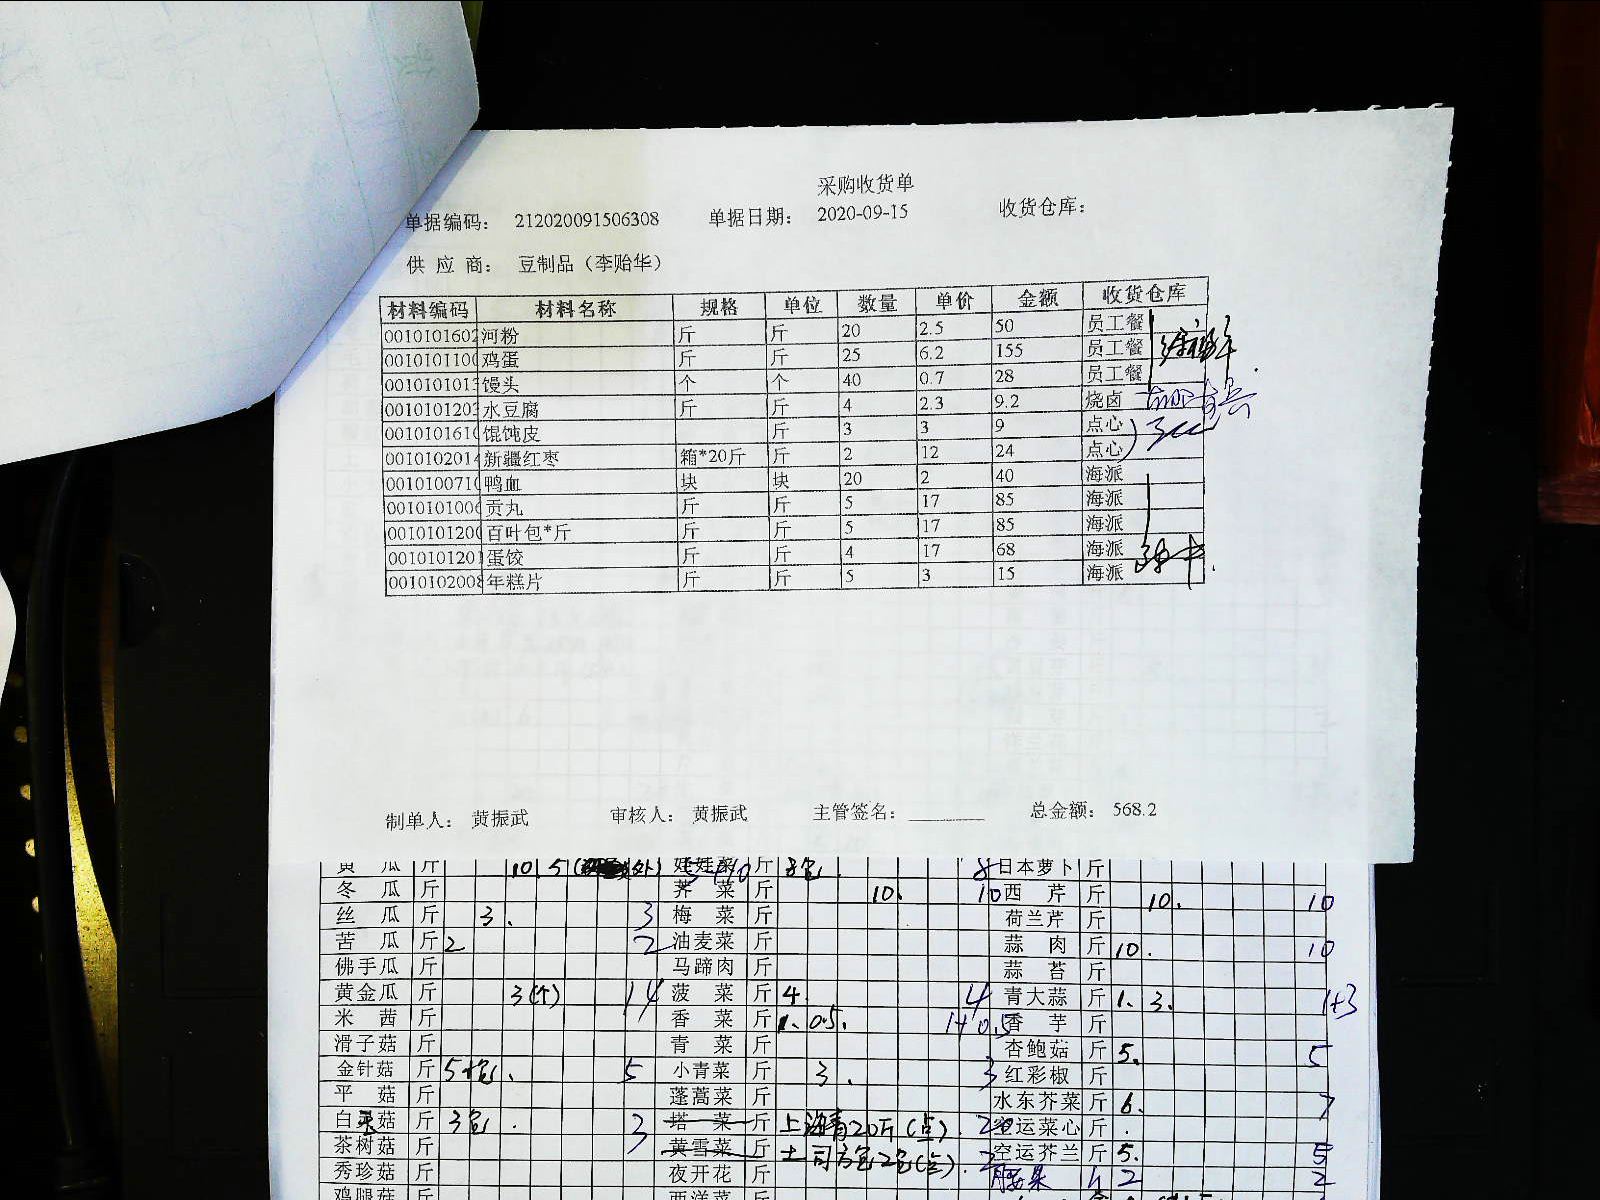 采购收货单
单据编码： 212020091506308 单据日期： 2020-09-15 收货仓库：
供 应 商： 豆制品（李贻华）
材料编码 材料名称 规格 单位 数量 单价 金额 收货仓库
0010101602 河粉 斤 斤 20 2.5 50 员工餐
0010101100 鸡蛋 斤 斤 25 6.2 155 员工餐
0010101013 馒头 个 个 40 0.7 28 员工餐
0010101203 水豆腐 斤 斤 4 2.3 9.2 烧卤
0010101610 馄饨皮 斤 3 3 9 点心
0010102014 新疆红枣 箱*20斤 斤 2 12 24 点心
0010100710 鸭血 块 块 20 2 40 海派
0010101006 贡丸 斤 斤 5 17 85 海派
0010101200 百叶包*斤 斤 斤 5 17 85 海派
0010101201 蛋饺 斤 斤 4 17 68 海派
0010102008 年糕片 斤 斤 5 3 15 海派
制单人： 黄振武 审核人： 黄振武 主管签名： 总金额： 568.2
黄 瓜 斤 10 5 娃娃菜 斤 8 日本萝卜 斤
冬 瓜 斤 荠 菜 斤 10. 10 西 芹 斤 10. 10
丝 瓜 斤 3. 3 梅 菜 斤 荷兰芹 斤
苦 瓜 斤 2 2 油麦菜 斤 蒜 肉 斤 10. 10
佛手瓜 斤 马蹄肉 斤 蒜 苔 斤
黄金瓜 斤 3(个) 14 菠 菜 斤 4 4 青大蒜 斤 1. 3. 1+3
米 茜 斤 香 菜 斤 1. 0.5. 1+0.5 香 芋 斤
滑子菇 斤 青 菜 斤 杏鲍菇 斤 5. 5
金针菇 斤 5 包. 5 小青菜 斤 3. 3 红彩椒 斤
平 菇 斤 蓬蒿菜 斤 水东芥菜 斤 6. 7
白玉菇 斤 3包. 3 塔 菜 斤 上海青20斤(点). 20 空运菜心 斤
茶树菇 斤 黄雪菜 斤 土司方包2包(点). 2 空运芥兰 斤 5. 5
秀珍菇 斤 夜开花 斤 腰果 2 2
鸡腿菇 斤 西洋菜 斤